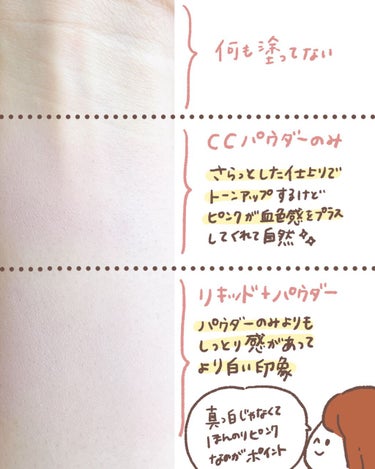 何も塗ってない
CCパウダーのみ
さらっとした仕上りで
トーンアップするけど
ピンクが血色感をプラス
してくれて自然
リキッド+パウダー
パウダーのみよりも
しっとり感があって
より白い印象
真っ白じゃなくて
ほんのりピンク
なのがポイント